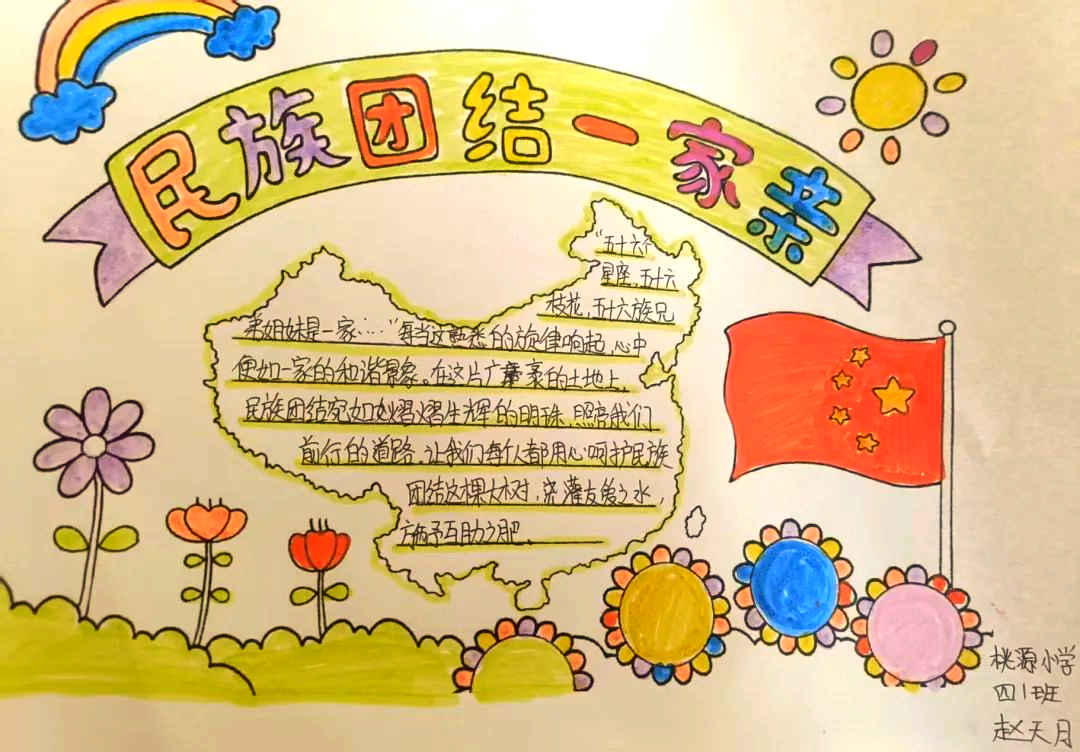 民族团结一家亲
“五十六个
星座,五十六
枝花,五十六族兄
弟姐妹是一家……”每当这熟悉的旋律响起,心中
便如一家的和谐景象。在这片广袤的土地上,
民族团结宛如熠熠生辉的明珠,照亮我们
前行的道路,让我们每个人都用心呵护民族
团结这棵大树,浇灌友爱之水,
互助之肥
桃源小学
四1班
赵天月